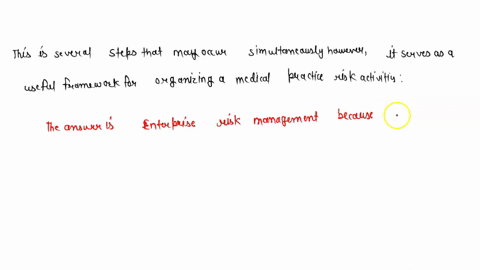 This is several steps that may occur simultaneously however, it serves as a
useful framework for organizing a medical practice risk activitiy:
The answer is Enterprise risk management because